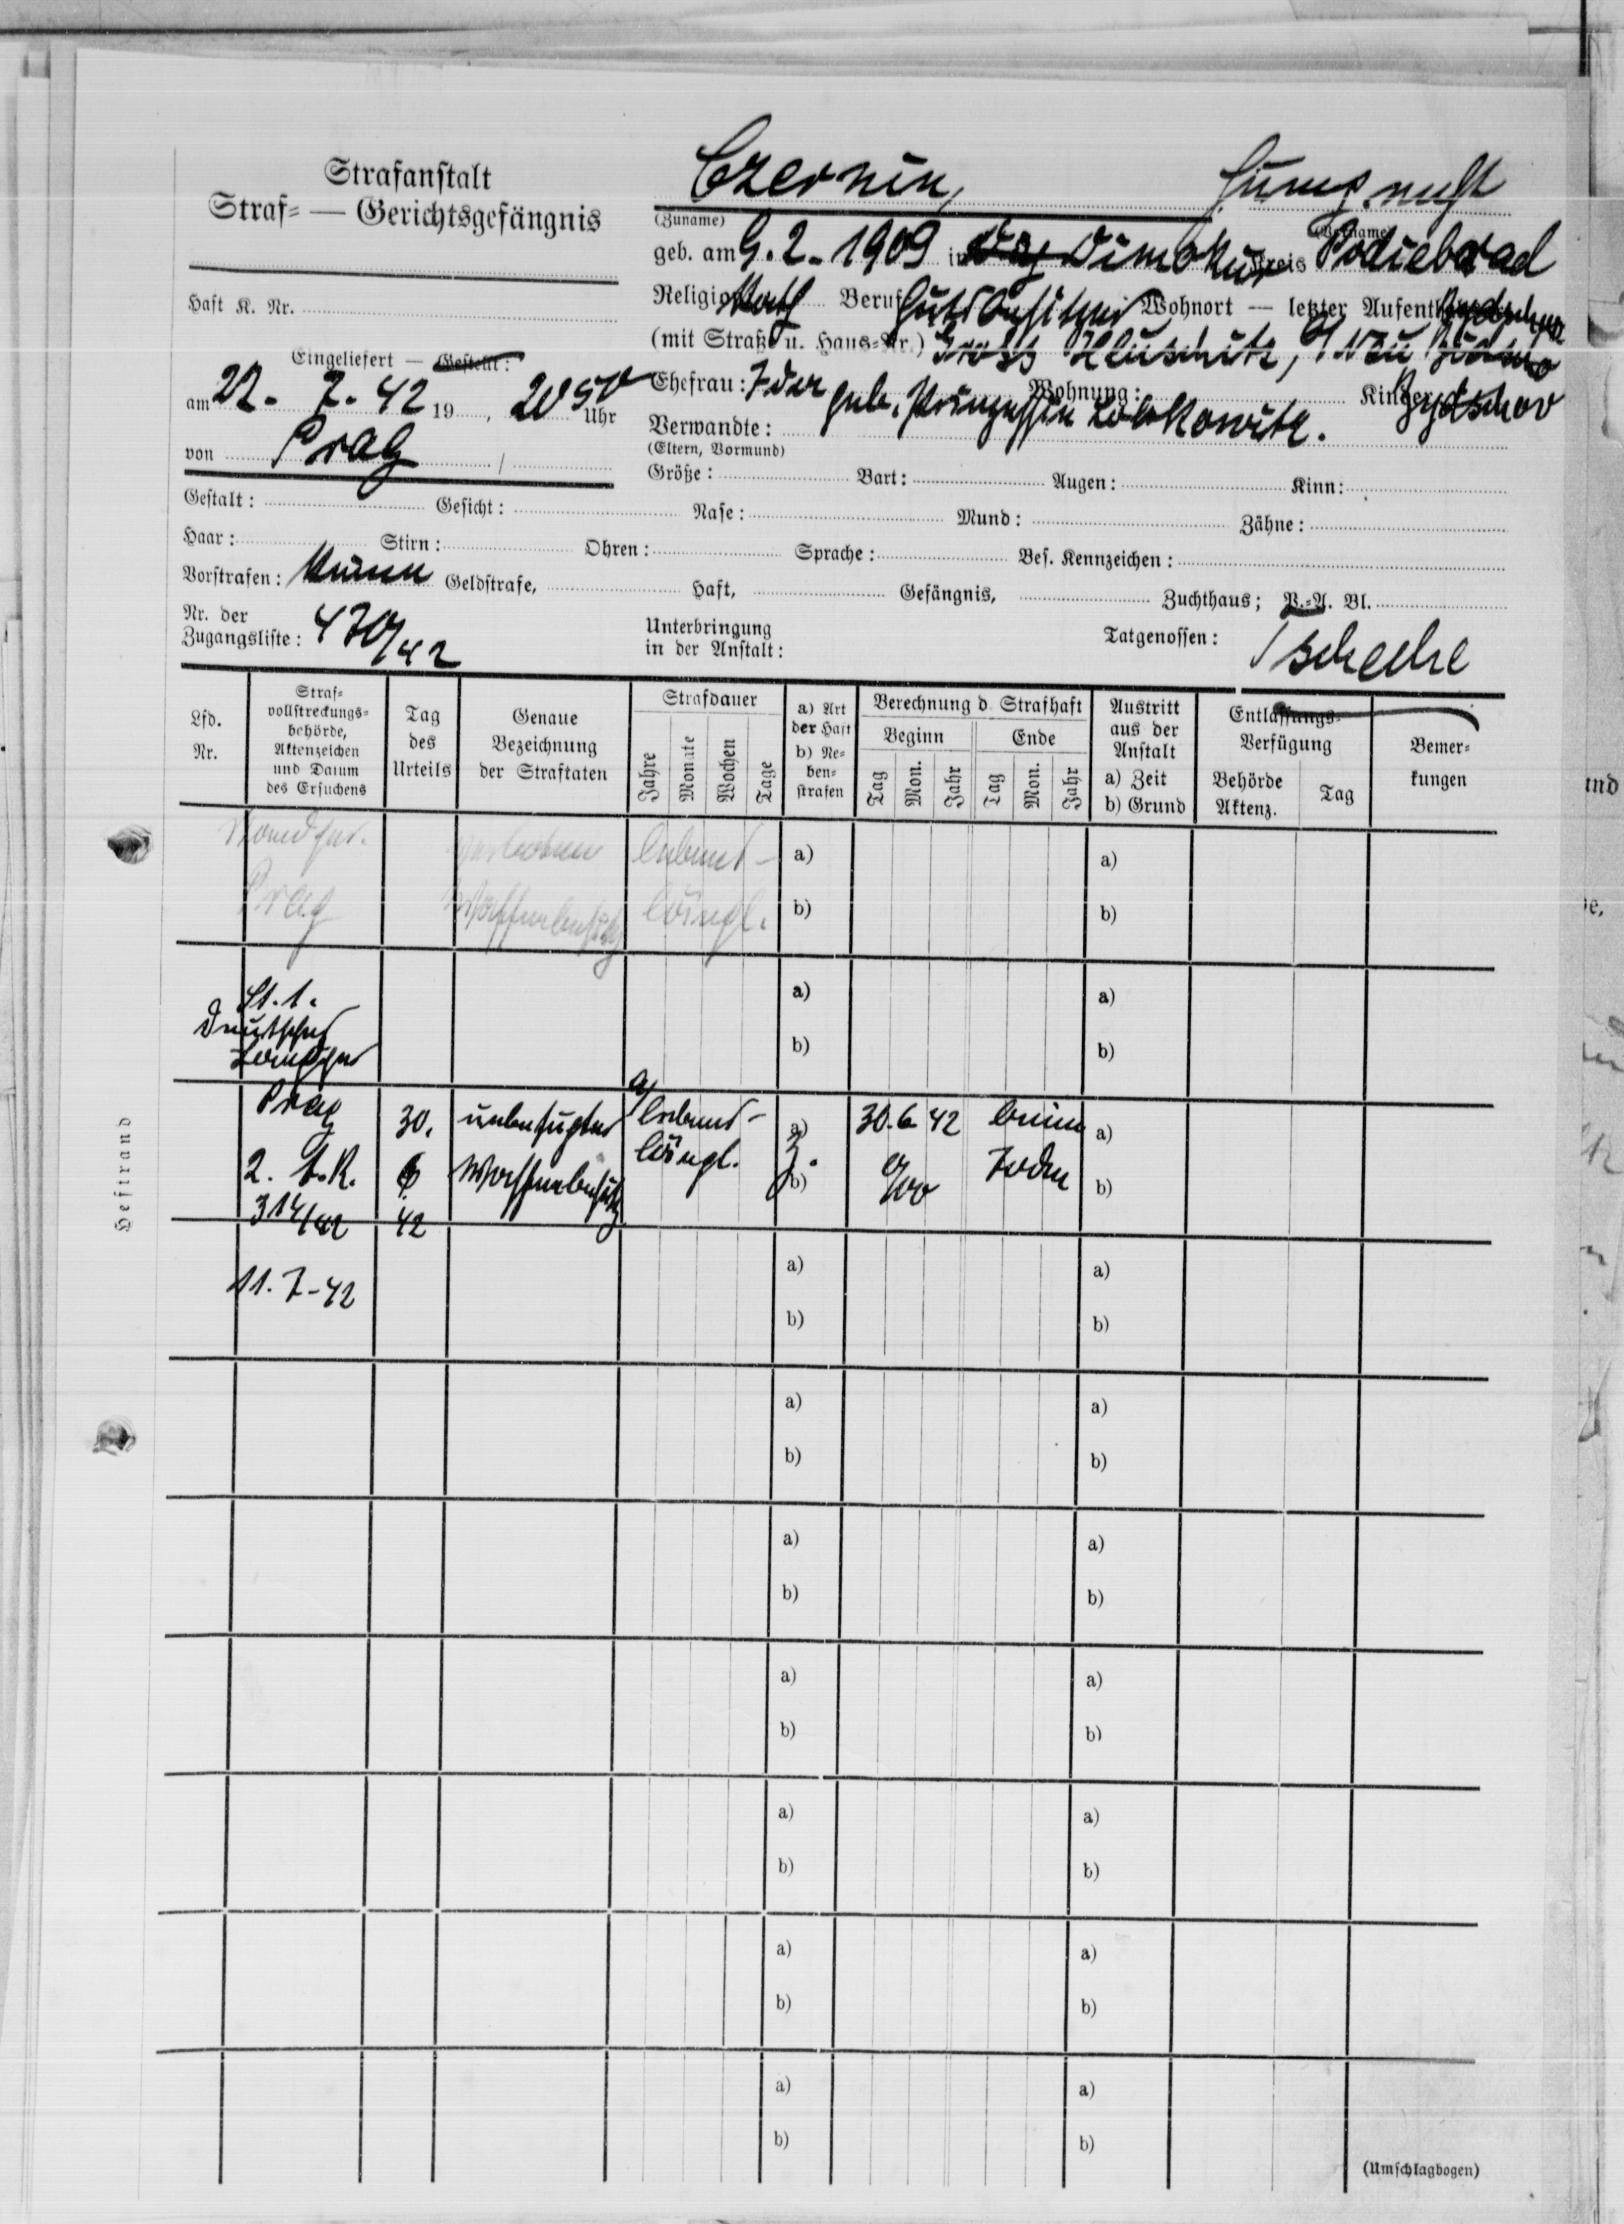 Strafanstalt
Straf= — Gerichtsgefängnis
Haft K. Nr.
Eingeliefert — Gestellt:
am 22. 7. 42 19 , 20 50 Uhr
von Prag /
Czernin,
(Zuname) (Vorname)
geb. am 9. 2. 1909 in Dimokur Kreis Podiebrad
Religion Kath Beruf Gutsbesitzer Wohnort — letzter Aufenth
(mit Straße u. Haus=Nr.) Gross Hluschitz, Neu
Ehefrau: geb. Prinzessin Lobkowitz. Wohnung: Kinder
Verwandte:
(Eltern, Vormund)
Größe: Bart: Augen: Kinn:
Gestalt: Gesicht: Nase: Mund: Zähne:
Haar: Stirn: Ohren: Sprache: Bes. Kennzeichen:
Vorstrafen: Keine Geldstrafe, Haft, Gefängnis, Zuchthaus; P.=A. Bl.
Nr. der
Zugangsliste: 470/42
Unterbringung
in der Anstalt:
Tatgenossen: Tscheche
Lfd.
Nr.
Straf=
vollstreckungs=
behörde,
Aktenzeichen
und Datum
des Ersuchens
Tag
des
Urteils
Genaue
Bezeichnung
der Straftaten
Strafdauer
Jahre
Monate
Wochen
Tage
a) Art
der Haft
b) Ne=
ben=
strafen
Berechnung d. Strafhaft
Beginn Ende
Tag Mon. Jahr Tag Mon. Jahr
Austritt
aus der
Anstalt
a) Zeit
b) Grund
Entlassungs=
Verfügung
Behörde
Aktenz.
Tag
Bemer=
kungen
Landger. verbotener lebens- a) a)
Prag Waffenbesitz längl. b) b)
St. A. a) a)
Deutsches
Landger b) b)
Prag 30. unbefugter lebens- a) 30. 6 42 beim a)
2. 6. Waffenbesitz längl. Z. b) Tode b)
314/42 42
11. 7 - 42 a) a)
b) b)
a) a)
b) b)
a) a)
b) b)
a) a)
b) b)
a) a)
b) b)
a) a)
b) b)
a) a)
b) b)
Heftrand
(Umschlagbogen)